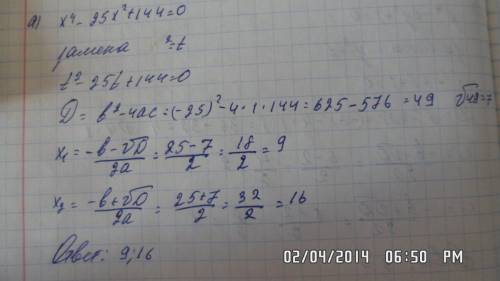 а) x⁴ - 25x² + 144 = 0
замена ² = t
t² - 25t + 144 = 0
D = b² - 4ac = (-25)² - 4·1·144 = 625 - 576 = 49 √49 = 7
x₁ = (-b - √D)/2a = (25 - 7)/2 = 18/2 = 9
x₂ = (-b + √D)/2a = (25 + 7)/2 = 32/2 = 16
Ответ: 9; 16
02/04/2014 06:50 PM